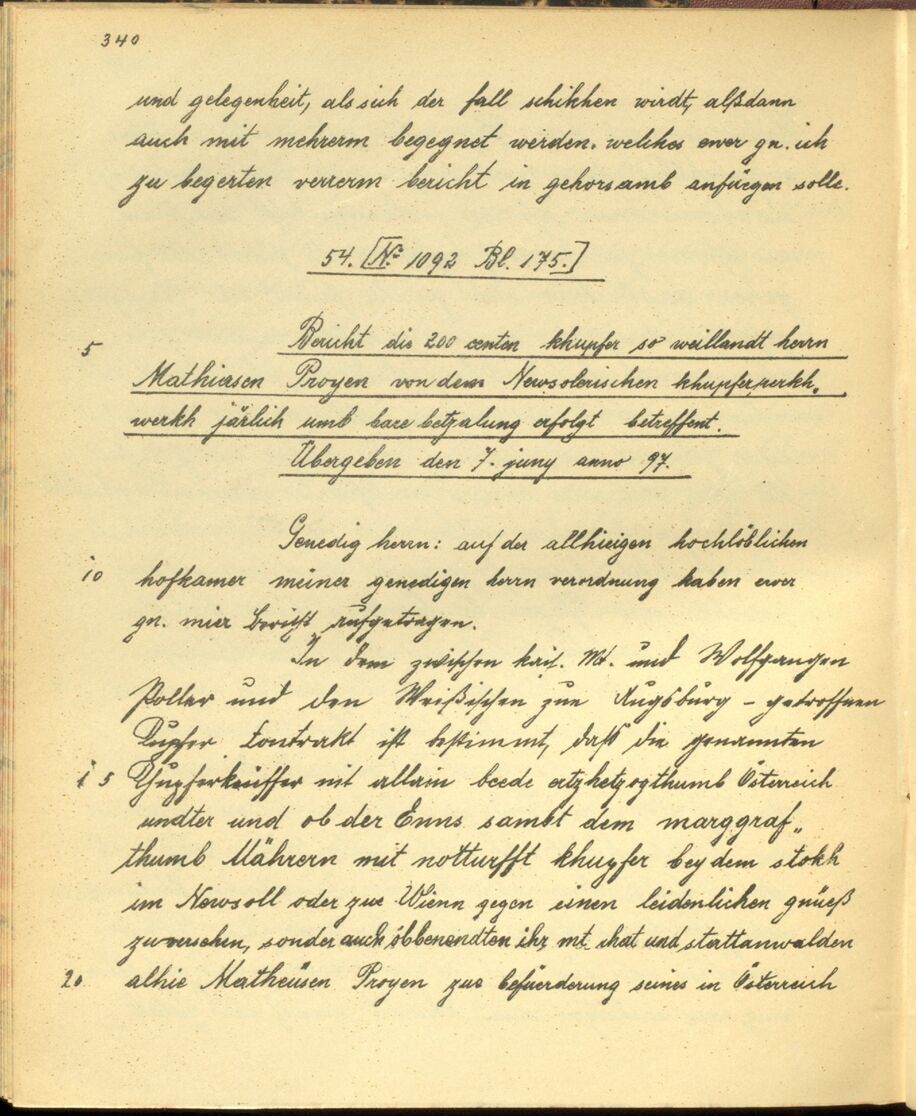 340
und gelegenheit, als sich der fall schikhen wirdt, alßdann
auch mit mehrerm begegnet werden. welches ewer gn. ich
zu begerten verrerm bericht in gehorsamb anfüegen solle.
54. [No 1092 Bl. 175.]
5 Bericht die 200 centen khupfer so weillandt herrn
Mathiasen Proyen von dem Newsolerischen khupferperkh„
werkh järlich umb bare betzalung erfolgt betreffent.
Übergeben den 7. juny anno 97.
Genedig herrn: auf der allhieigen hochlöblichen
10 hofkamer meiner genedigen herrn verordnung haben ewer
gn. mier bericht aufgetragen.
In dem zwischen kais. Mt. und Wolfgangen
Poller und den Weißischen zue Augsburg – getroffnen
Kupfer Contrakt ist bestimmt, daß die genannten
15 Khupferkeuffer nit allain beede ertzhetzogthumb Österreich
undter und ob der Enns sambt dem marggraf„
thumb Mährern mit notturfft khupfer bey dem stokh
im Newsoll oder zue Wienn gegen einen leidenlichen gnüeß
zuversehen, sonder auch obbenendten ihr mt. rhat und stattanwalden
20 alhie Matheüsen Proyen zue befüerderung seines in Österreich